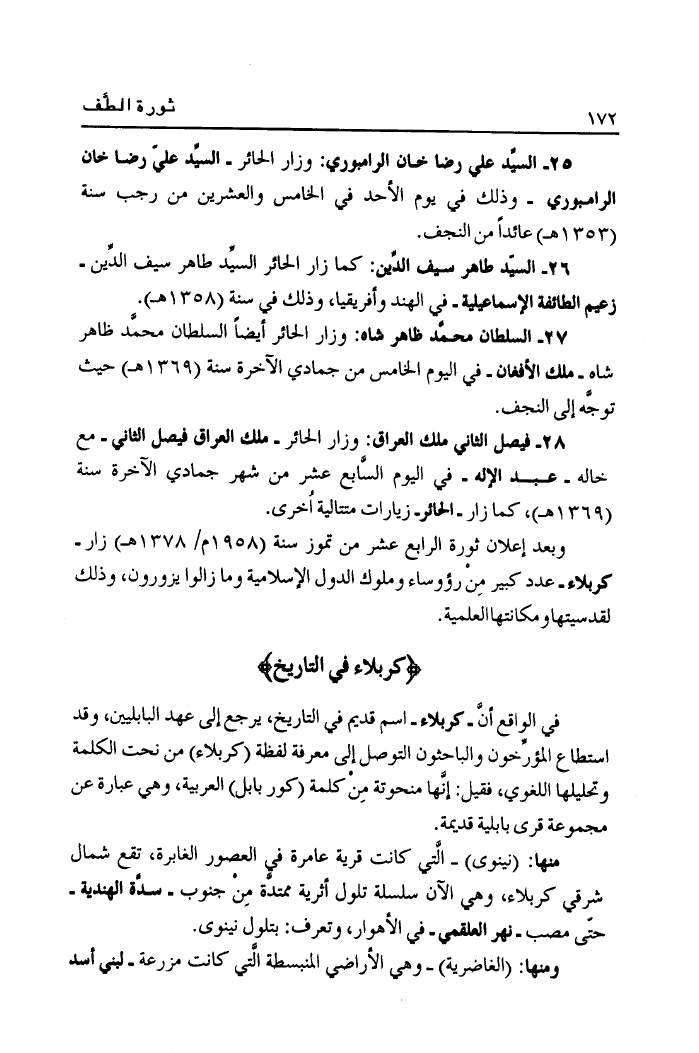 ١٧٢
ثورة الطَّف
٢٥ـ السيِّد علي رضا خان الرامبوري: وزار الحائر ـ السيِّد عليّ رضا خان
الرامبوري ـ وذلك في يوم الأحد في الخامس والعشرين من رجب سنة
(١٣٥٣هـ) عائداً من النجف.
٢٦ـ السيّد طاهر سيف الدِّين: كما زار الحائر السيِّد طاهر سيف الدِّين ـ
زعيم الطائفة الإسماعيلية ـ في الهند وأفريقيا، وذلك في سنة (١٣٥٨هـ).
٢٧ـ السلطان محمَّد ظاهر شاه: وزار الحائر أيضاً السلطان محمَّد ظاهر
شاه ـ ملك الأفغان ـ في اليوم الخامس من جمادي الآخرة سنة (١٣٦٩هـ) حيث
توجَّه إلى النجف.
٢٨ـ فيصل الثاني ملك العراق: وزار الحائر ـ ملك العراق فيصل الثاني ـ مع
خاله ـ عبد الإله ـ في اليوم السَّابع عشر من شهر جمادي الآخرة سنة
(١٣٦٩هـ)، كما زار ـ الحائر ـ زيارات متتالية أُخرى.
وبعد إعلان ثورة الرابع عشر من تموز سنة (١٩٥٨م/ ١٣٧٨هـ) زار ـ
كربلاء ـ عدد كبير مِنْ رؤوساء وملوك الدول الإسلامية وما زالوا يزورون، وذلك
لقدسيتها ومكانتها العلمية.
﴿كربلاء في التاريخ﴾
في الواقع أنَّ ـ كربلاء ـ اسم قديم في التاريخ، يرجع إلى عهد البابليين، وقد
استطاع المؤرِّخون والباحثون التوصل إلى معرفة لفظة (كربلاء) من نحت الكلمة
وتحليلها اللغوي، فقيل: إنَّها منحوتة مِنْ كلمة (كور بابل) العربية، وهي عبارة عن
مجموعة قرى بابلية قديمة.
منها: (نينوى) ـ الَّتي كانت قرية عامرة في العصور الغابرة، تقع شمال
شرقي كربلاء، وهي الآن سلسلة تلول أثرية ممتدَّة مِنْ جنوب ـ سدَّة الهندية ـ
حتّى مصب ـ نهر العلقمي ـ في الأهوار، وتعرف: بتلول نينوى.
ومنها: (الغاضرية) ـ وهي الأراضي المنبسطة الَّتي كانت مزرعة ـ لبني أسد